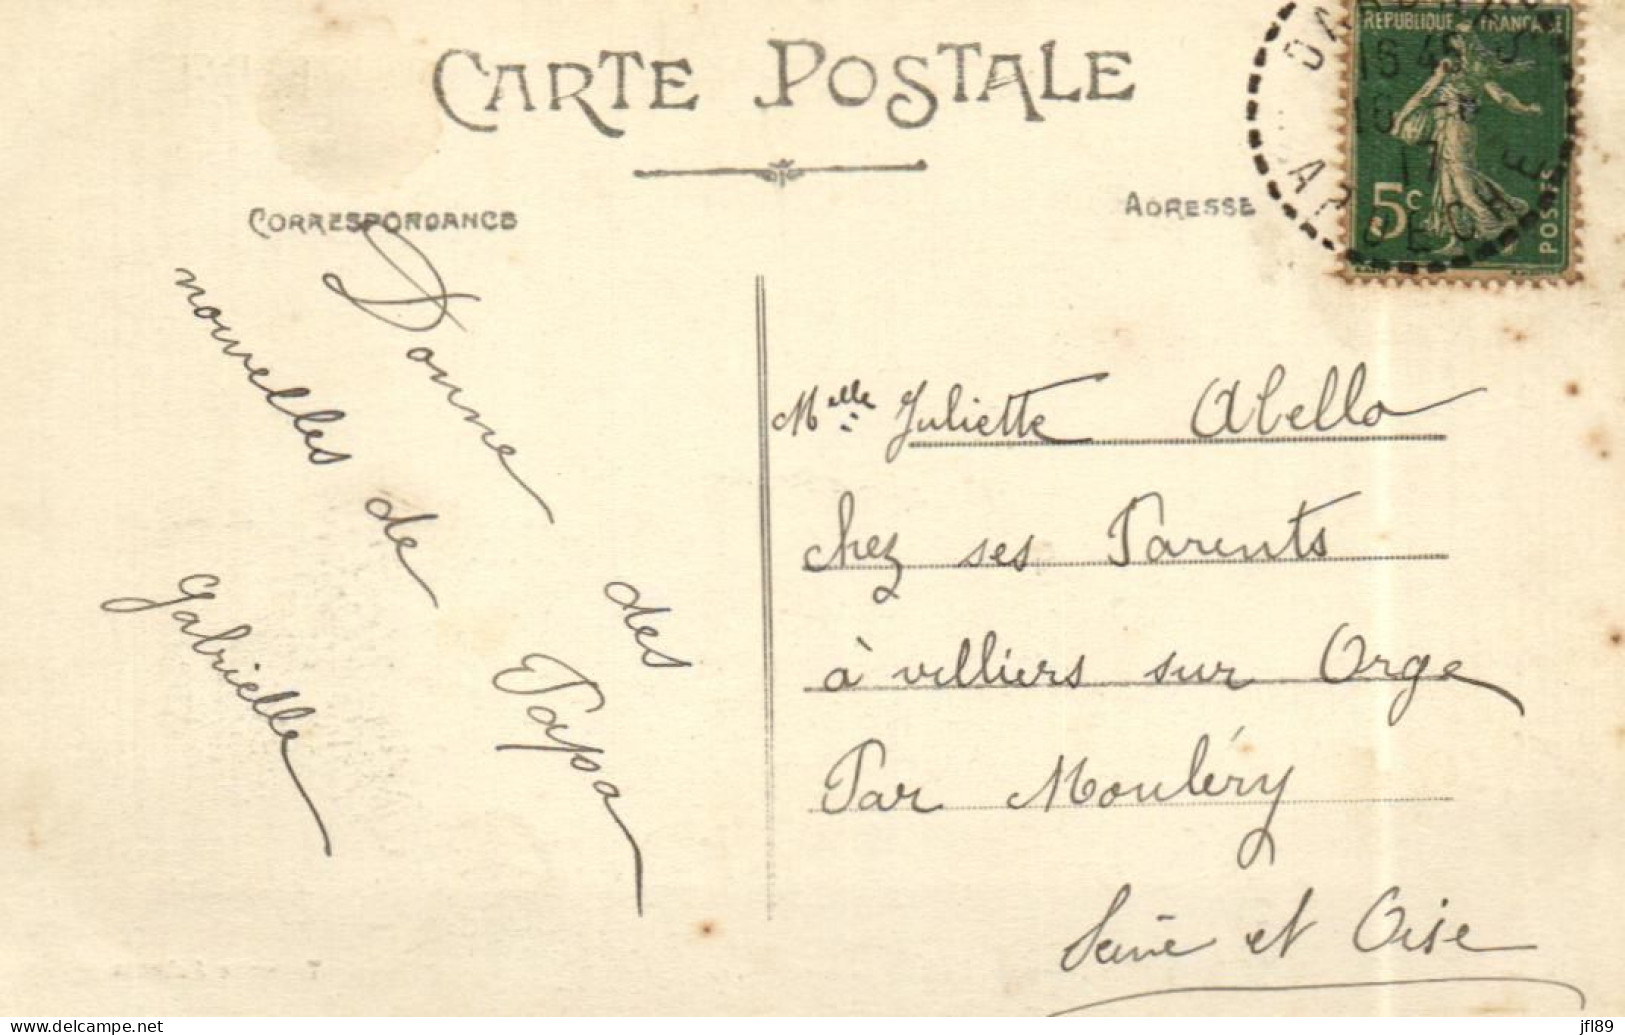 CARTE POSTALE
CORRESPONDANCE
ADRESSE
REPUBLIQUE FRANÇAISE
5c
POSTES
16 45
17
ARDECHE
Donne des
nouvelles de Papa
Gabrielle
Melle Juliette Abella
chez ses Parents
à villiers sur Orge
Par Monléry
Seine et Oise
www.delcampe.net
jfl89